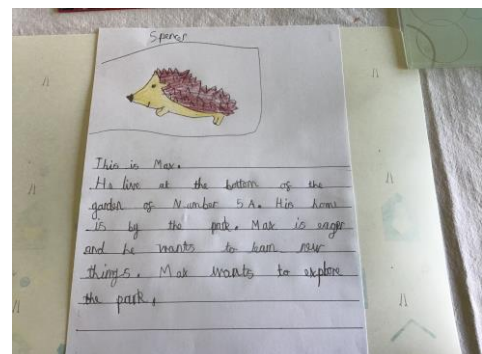 Spencer
This is Max.
He live at the bottom of the
garden of Number 5A. His home
is by the park. Max is eager
and he wants to learn new
things. Max wants to explore
the park.